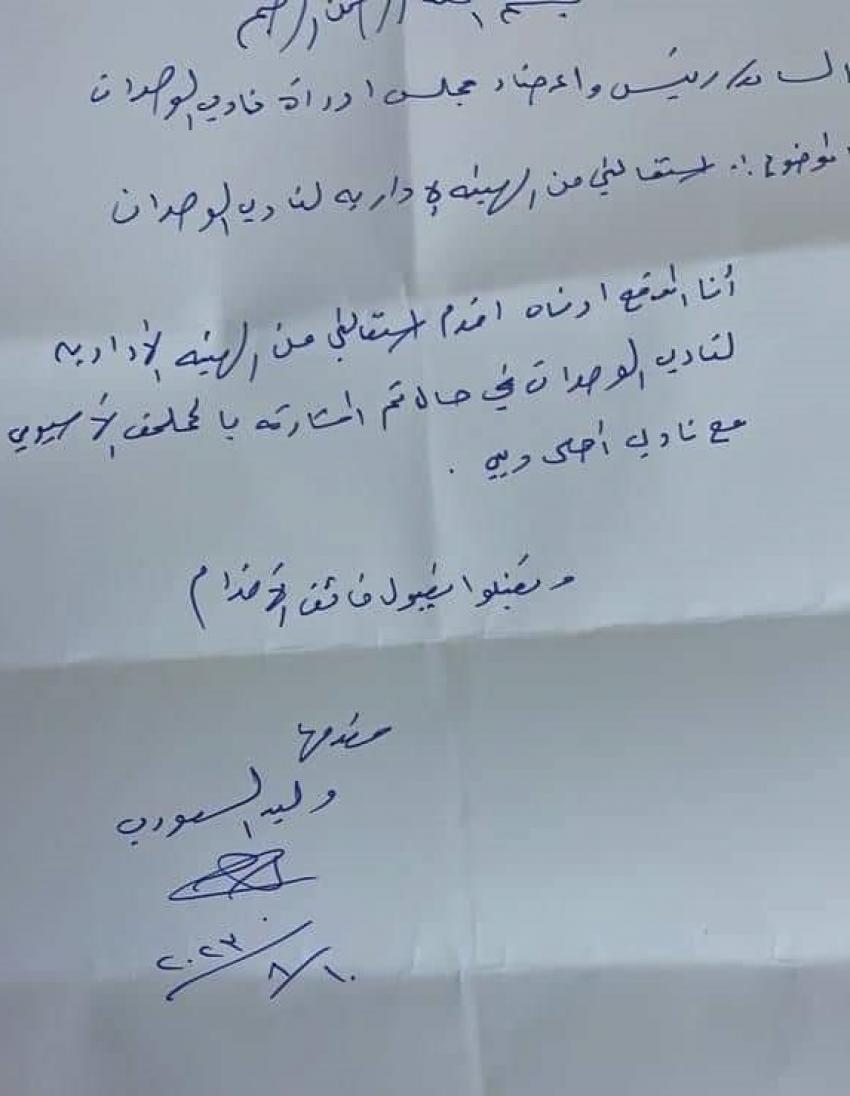 بسم الله الرحمن الرحيم
السادة رئيس واعضاء مجلس ادراة نادي الوحدات
الموضوع :. استقالتي من الهيئه الإداريه لنادي الوحدات
أنا الموقع ادناه اقدم استقالتي من الهيئه الأداريه
لنادي الوحدات في حال تم المشاركه بالملحق الأسيوي
مع نادي
وتقبلوا بقبول فائق الأحترام
مقدمها
وليد السعودي
٢٠٢٣/٨/١٠